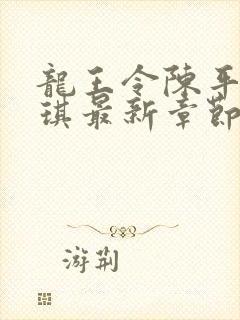 龍王令陳平
琪最新章節
游荆